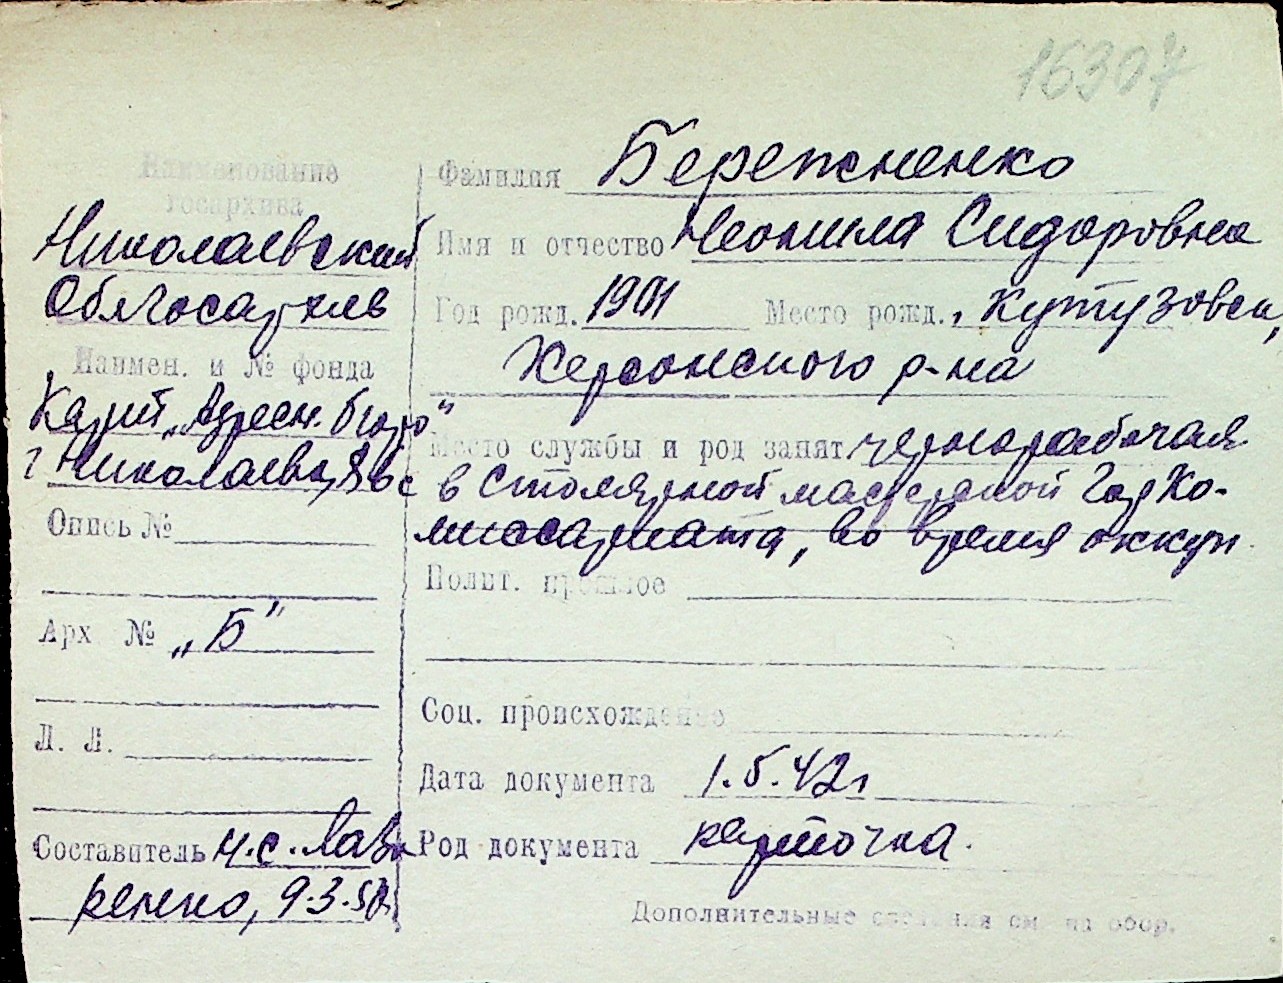 16307
Наименование
госархива
Николаевский
Облгосархив
Наимен. и № фонда
Карт. „Адресн. бюро"
г Николаева,
Опись №
Арх № „Б"
Л. Л.
Составитель Н.С. Лав
ренко, 9.3.50г
Фамилия Бережненко
Имя и отчество Неонила Сидоровна
Год рожд. 1901 Место рожд. Кутузовка,
Херсонского р-на
Место службы и род занят. чернорабочая
в столярной мастерской Гор Ко-
миссариата, во время оккуп.
Полит. прошлое
Соц. происхождение
Дата документа 1.5.42г
Род документа карточка.
Дополнительные сведения см. на обор.